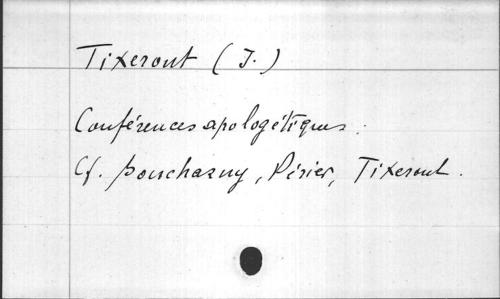 Tixeront (J.)
Conférences apologétiques :
Cf. Bouchany, Périer, Tixeront.